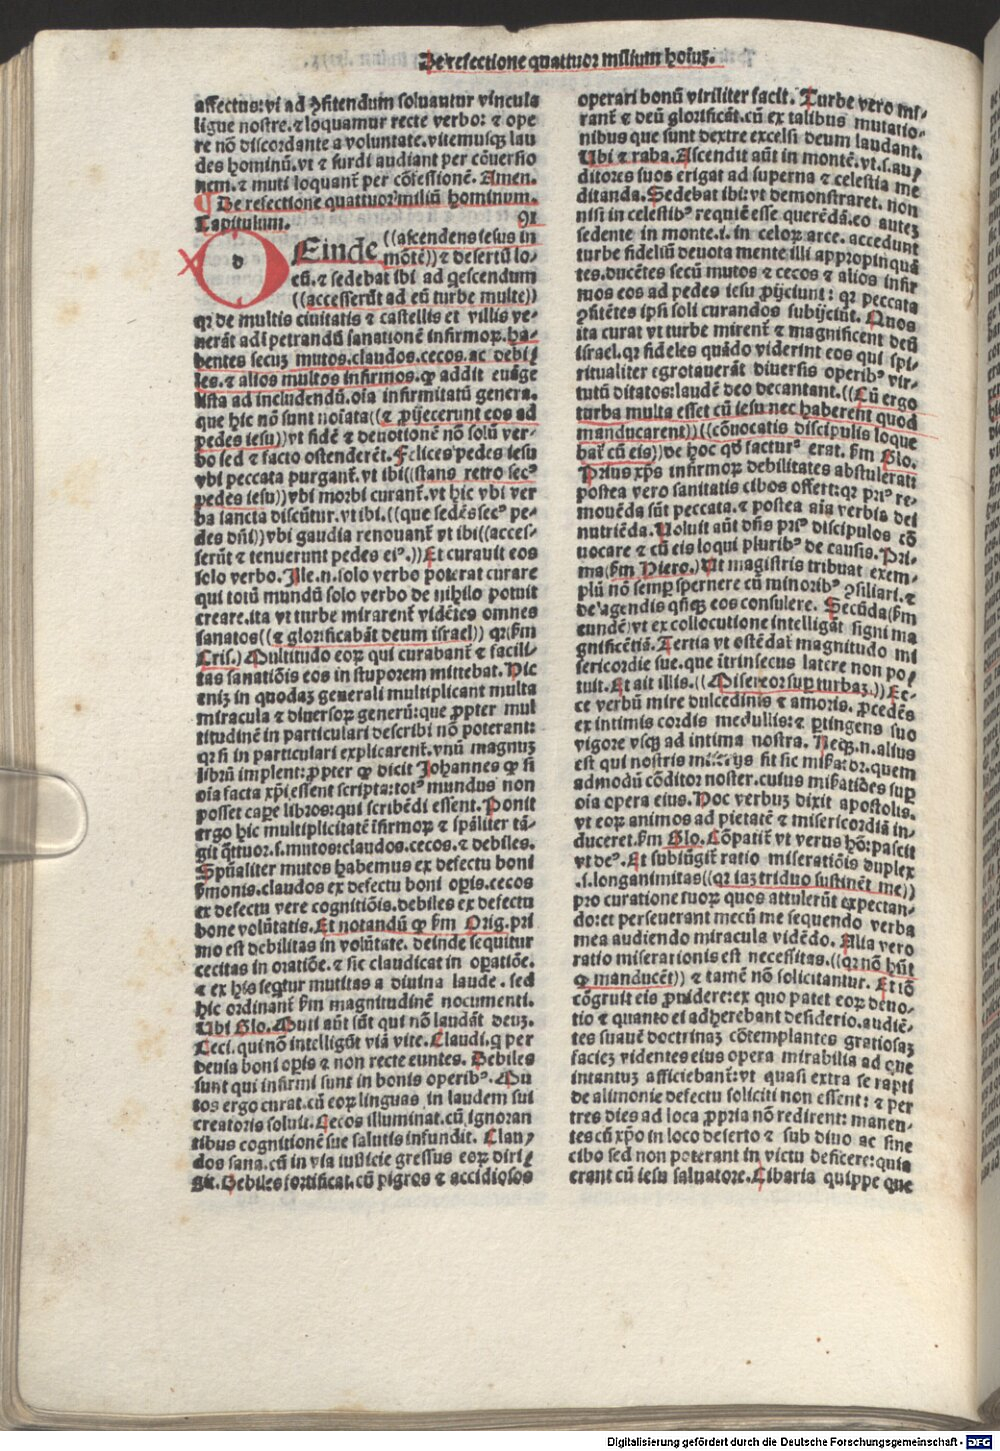 De refectione quattuor milium hoĩuꝫ.
affectus: vt ad ꝯfitendum soluantur vincula
ligue nostre. ⁊ loquamur recte verbo: ⁊ ope
re nõ discordante a voluntate. vitemusqꝫ lau
des hominũ. vt ⁊ surdi audiant per cõuersio
nem. ⁊ muti loquant̃ per cõfessionẽ. Amen.
¶ De refectione quattuor miliũ hominum.
Capitulum. 91
DEinde ((ascendens iesus in
mõtẽ)) ⁊ desertũ lo-
cũ. ⁊ sedebat ibi ad q̃escendum
((accesserũt ad eũ turbe multe))
qꝛ de multis ciuitatis ⁊ castellis et villis ve-
nerãt ad ĩpetrandũ sanationẽ infirmoꝝ. ha-
bentes secuꝫ mutos. claudos. cecos. ac debi
les. ⁊ alios multos infirmos. qđ addit euãge
lista ad includendũ. oĩa infirmitatũ genera.
que hic nõ sunt noĩata ((⁊ ꝓijecerunt eos ad
pedes iesu)) vt fidẽ ⁊ deuotionẽ nõ solũ ver-
bo sed ⁊ facto ostenderẽt. Felices pedes iesu
vbi peccata purgant̃. vt ibi ((stans retro secꝰ
pedes iesu)) vbi morbi curant̃. vt hic vbi ver
ba sancta discũtur. vt ibi. ((que sedẽs secꝰ pe-
des dñi)) vbi gaudia renouant̃ vt ibi ((acces-
serũt ⁊ tenuerunt pedes eiꝰ.)) Et curauit eos
solo verbo. Ille. n. solo verbo poterat curare
qui totũ mundũ solo verbo de nihilo potuit
creare. ita vt turbe mirarent̃ vidẽtes omnes
sanatos ((⁊ glorificabãt deum israel)) qꝛ (ẜm
Cris.) Multitudo eoꝝ qui curabant̃ ⁊ facili-
tas sanatiõis eos in stuporem mittebat. Hic
enĩꝫ in quodaꝫ generali multiplicant multa
miracula ⁊ diuersoꝝ generũ: que ꝓpter mul
titudinẽ in particulari describi nõ poterant:
qꝛ si in particulari explicarent̃. vnũ magnuꝫ
librũ implent: ꝓpter qđ dicit Johannes qđ si
oĩa facta xp̃i essent scripta: totꝰ mundus non
posset caꝑe libros: qui scribẽdi essent. Ponit
ergo hic multiplicitatẽ ĩfirmoꝝ ⁊ sp̃aliter tã-
git q̃ttuor. s. mutos: claudos. cecos. ⁊ debiles.
Sp̃ualiter mutos habemus ex defectu boni
ẜmonis. claudos ex defectu boni oꝑis. cecos
ex defectu vere cognitiõis. debiles ex defectu
bone volũtatis. Et notandũ qđ ẜm Orig. pri
mo est debilitas in volũtate. deinde sequitur
cecitas in oratiõe. ⁊ sic claudicat in oꝑatiõe.
⁊ ex his seq̃tur mutitas a diuina laude. sed
hic ordinant̃ ẜm magnitudinẽ nocumenti.
Ubi Glo. Muti aũt sũt qui nõ laudãt deuꝫ.
Ceci. qui nõ intelligũt viã vite. Claudi. q̃ per
deuia boni oꝑis ⁊ non recte euntes. Debiles
sunt qui infirmi sunt in bonis operibꝰ. Mu
tos ergo curat. cũ eoꝝ linguas in laudem sui
creatoris soluit. Cecos illuminat. cũ ignoran
tibus cognitionẽ sue salutis infundit. Clau
dos sana. cũ in via iusticie gressus eoꝝ diri
git. Debiles fortificat. cũ pigros ⁊ accidiosos
operari bonũ viriliter facit. Turbe vero mi-
rant̃ ⁊ deũ glorificãt. cũ ex talibus mutatio-
nibus que sunt dextre excelsi deum laudant.
Ubi ⁊ raba. Ascendit aũt in montẽ. vt. s. au
ditores suos erigat ad superna ⁊ celestia me
ditanda. Sedebat ibi: vt demonstraret. non
nisi in celestibꝰ requiẽ esse querẽdã. eo auteꝫ
sedente in monte. i. in celoꝝ arce. accedunt
turbe fideliũ deuota mente illi appropinquã
tes. ducẽtes secũ mutos ⁊ cecos ⁊ alios infir
mos eos ad pedes iesu ꝓijciunt: qꝛ peccata
ꝯfitẽtes ip̃si soli curandos subijciũt. Quos
ita curat vt turbe mirent̃ ⁊ magnificent deũ
israel. qꝛ fideles quãdo viderint eos qui spi-
ritualiter egrotauerãt diuersis operibꝰ vir-
tutũ ditatos: laudẽ deo decantant. ((Cũ ergo
turba multa esset cũ iesu nec haberent quod
manducarent)) ((cõuocatis discipulis loque
bat̃ cũ eis)) de hoc qđ facturꝰ erat. ẜm Glo.
Prius xp̃s infirmoꝝ debilitates abstulerat
postea vero sanitatis cibos offert: qꝛ priꝰ re-
mouẽda sũt peccata. ⁊ postea aĩa verbis dei
nutriẽda. Uoluit aũt dñs priꝰ discipulos cõ
uocare ⁊ cũ eis loqui pluribꝰ de causis. Pri-
ma (ẜm Hiero.) Ut magistris tribuat exem-
plũ nõ semꝑ spernere cũ minoribꝰ ꝯsiliari. ⁊
de agendis q̃ñqꝫ eos consulere. Secũda (ẜm
eundẽ) vt ex collocutione intelligãt signi ma
gnificẽtiã. Tertia vt ostẽdat̃ magnitudo mi
sericordie sue. que ĩtrinsecus latere non po
tuit. Et ait illis. ((Misereor suꝑ turbaꝫ.)) Ec-
ce verbũ mire dulcedinis ⁊ amoris. ꝓcedẽs
ex intimis cordis medullis: ⁊ ꝑtingens suo
vigore vsqꝫ ad intima nostra. Neqꝫ. n. alius
est qui nostris fit sic miẜator. quem
admodũ cõditor noster. cuius miẜatiões suꝑ
oĩa opera eius. Hoc verbuꝫ dixit apostolis.
vt eoꝝ animos ad pietatẽ ⁊ misericordiã in-
duceret. ẜm Glo. Cõpatit̃ vt verus hõ: pascit
vt deꝰ. Et subiũgit̃ ratio miseratiõis duplex
.s. longanimitas ((qꝛ iaꝫ triduo sustinẽt me))
pro curatione suoꝝ quos attulerũt expectan-
do: et perseuerant mecũ me sequendo verba
mea audiendo miracula vidẽdo. Alia vero
ratio miserationis est necessitas. ((qꝛ nõ hñt
qđ manducẽt)) ⁊ tamẽ nõ solicitantur. Et iõ
cõgruit eis ꝓuidere: ex quo patet eoꝝ deuo-
tio ⁊ quanto ei adherebant desiderio. audiẽ-
tes suauẽ doctrinaꝫ cõtemplantes gratiosaꝫ
facieꝫ videntes eius opera mirabilia ad que
intantuꝫ afficiebant̃: vt quasi extra se rapti
de alimonie defectu soliciti non essent: ⁊ per
tres dies ad loca ꝓpria nõ redirent: manen-
tes cũ xp̃o in loco deserto ⁊ sub diuo ac sine
cibo sed non poterant in victu deficere: quia
erant cũ iesu saluatore. Cibaria quippe que
Digitalisierung gefördert durch die Deutsche Forschungsgemeinschaft - DFG